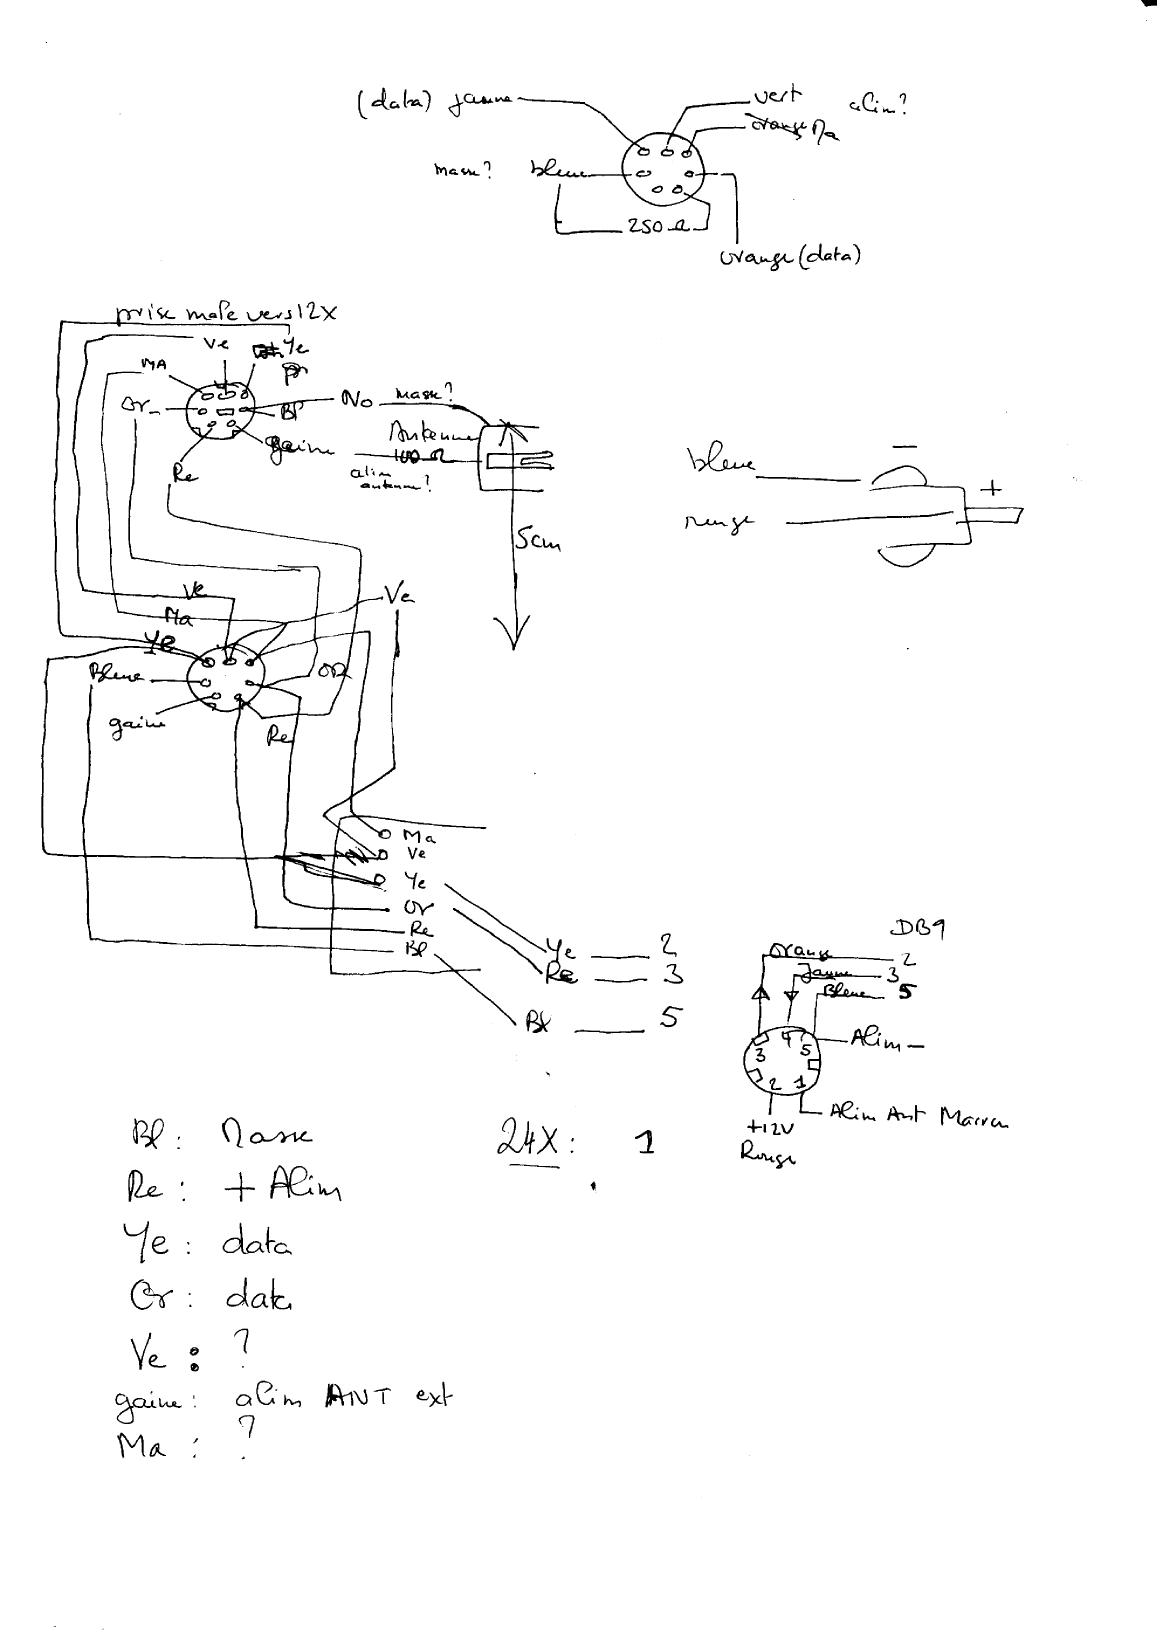 (data) jaune
vert alim?
orange Ma
masse? bleue
250 Ω
orange (data)
prise male vers 12X
Ve
Ye
MA
Or
Bl
No masse?
gaine
Antenne
100 Ω
alim
antenne?
Re
5cm
bleue
-
+
rouge
Ve
Ma
Ye
Ve
Bleue
OR
gaine
Re
Ma
Ve
Ye
Or
Re
Bl
Ye 2
Re 3
Bl 5
DB9
orange 2
Jaune 3
Bleue 5
3 4 5
2 1
Alim -
Alim Ant Marron
+12V
Rouge
Bl : Masse
24X : 1
Re : + Alim
Ye : data
Or : data
Ve : ?
gaine : alim ANT ext
Ma : ?